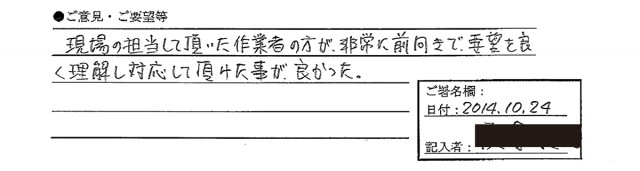 ●ご意見・ご要望等
現場の担当して頂いた作業者の方が、非常に前向きで、要望を良
く理解し対応して頂けた事が、良かった。
ご署名欄:
日付:2014.10.24
記入者: